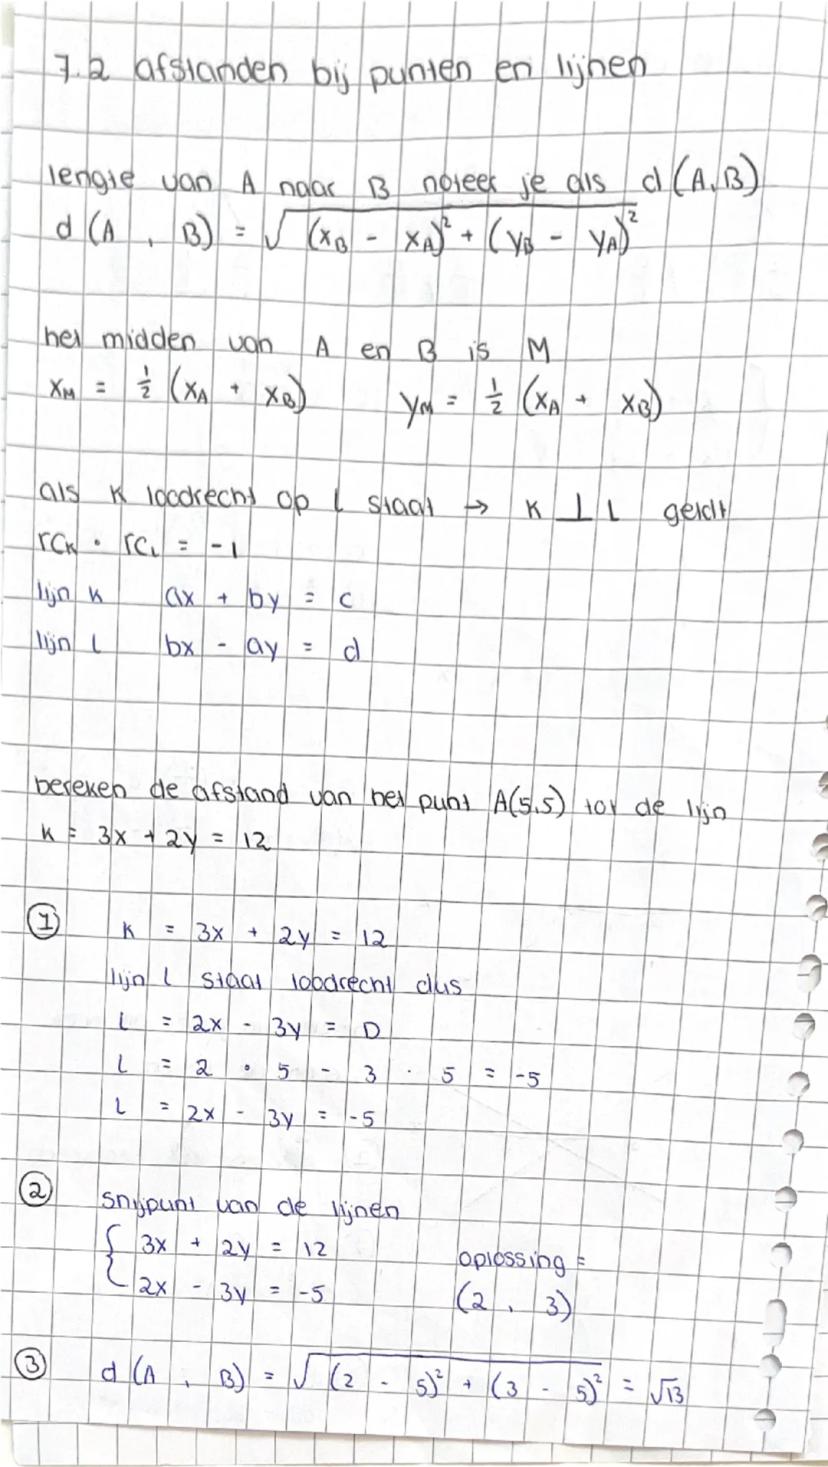 7.2 afstanden bij punten en lijnen
lengte van A naar B noteer je als d(A,B)
d (A , B) = √(x_B - x_A)² + (y_B - y_A)²
het midden van A en B is M
x_M = ½ (x_A + x_B) y_M = ½ (x_A + x_B)
als k loodrecht op l staat → k ⊥ l geldt
rc_k • rc_l = -1
lijn k ax + by = c
lijn l bx - ay = d
bereken de afstand van het punt A(5,5) tot de lijn
k = 3x + 2y = 12
① k = 3x + 2y = 12
lijn l staat loodrecht dus
l = 2x - 3y = D
l = 2 • 5 - 3 · 5 = -5
l = 2x - 3y = -5
② snijpunt van de lijnen
{ 3x + 2y = 12 oplossing =
2x - 3y = -5 (2 , 3)
③ d (A , B) = √(2 - 5)² + (3 - 5)² = √13